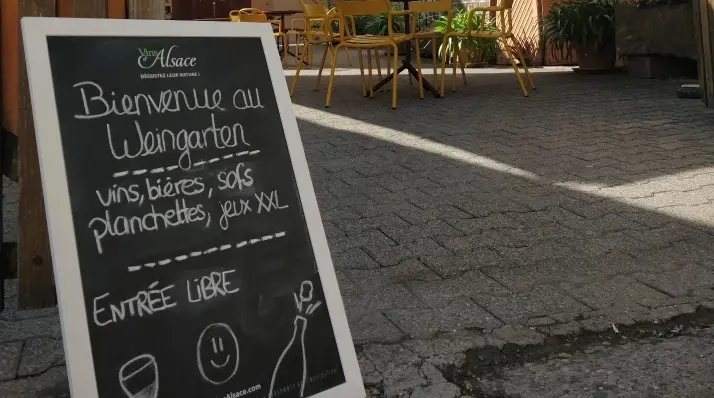 Vins
d'Alsace
DÉGUSTEZ LEUR NATURE !
Bienvenue au
Weingarten
vins, bières, softs
planchettes, jeux XXL
ENTRÉE LIBRE
Alsace.com